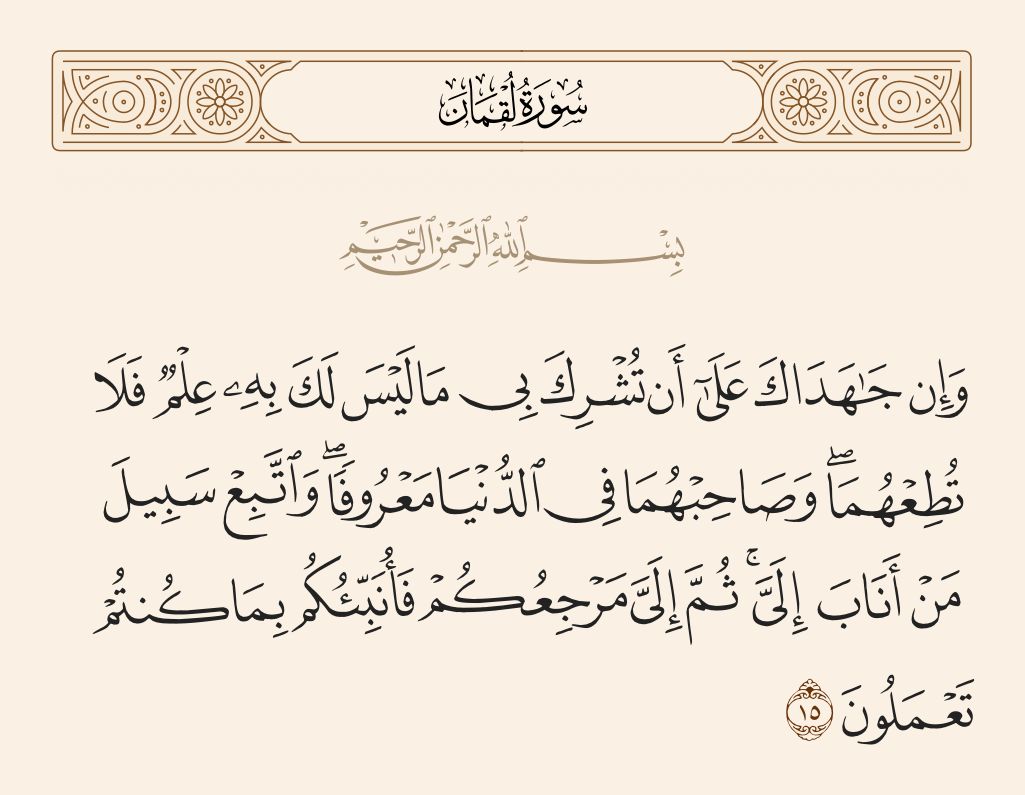 سُورَةُ لُقْمَان
بِسْمِ ٱللَّهِ ٱلرَّحْمَٰنِ ٱلرَّحِيمِ
وَإِن جَٰهَدَاكَ عَلَىٰٓ أَن تُشْرِكَ بِى مَا لَيْسَ لَكَ بِهِۦ عِلْمٌ فَلَا
تُطِعْهُمَا ۖ وَصَاحِبْهُمَا فِى ٱلدُّنْيَا مَعْرُوفًا ۖ وَٱتَّبِعْ سَبِيلَ
مَنْ أَنَابَ إِلَىَّ ۚ ثُمَّ إِلَىَّ مَرْجِعُكُمْ فَأُنَبِّئُكُم بِمَا كُنتُمْ
تَعْمَلُونَ ١٥